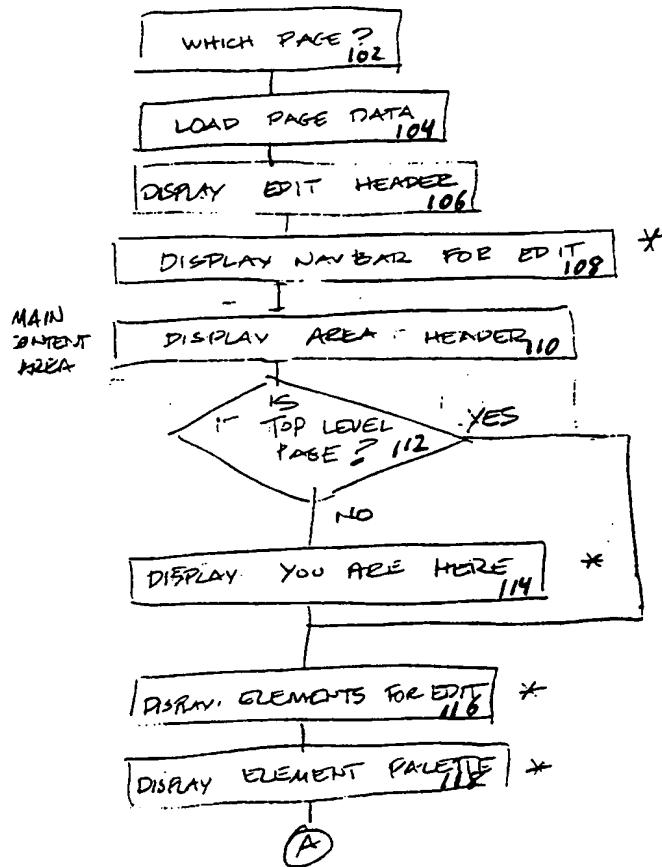 WHICH PAGE?
102
LOAD PAGE DATA
104
DISPLAY EDIT HEADER
106
DISPLAY NAVBAR FOR EDIT *
108
MAIN
CONTENT
AREA
DISPLAY AREA HEADER
110
IS
IT TOP LEVEL
PAGE? 112
YES
NO
DISPLAY YOU ARE HERE *
114
DISPLAY ELEMENTS FOR EDIT *
116
DISPLAY ELEMENT PALETTE *
118
A